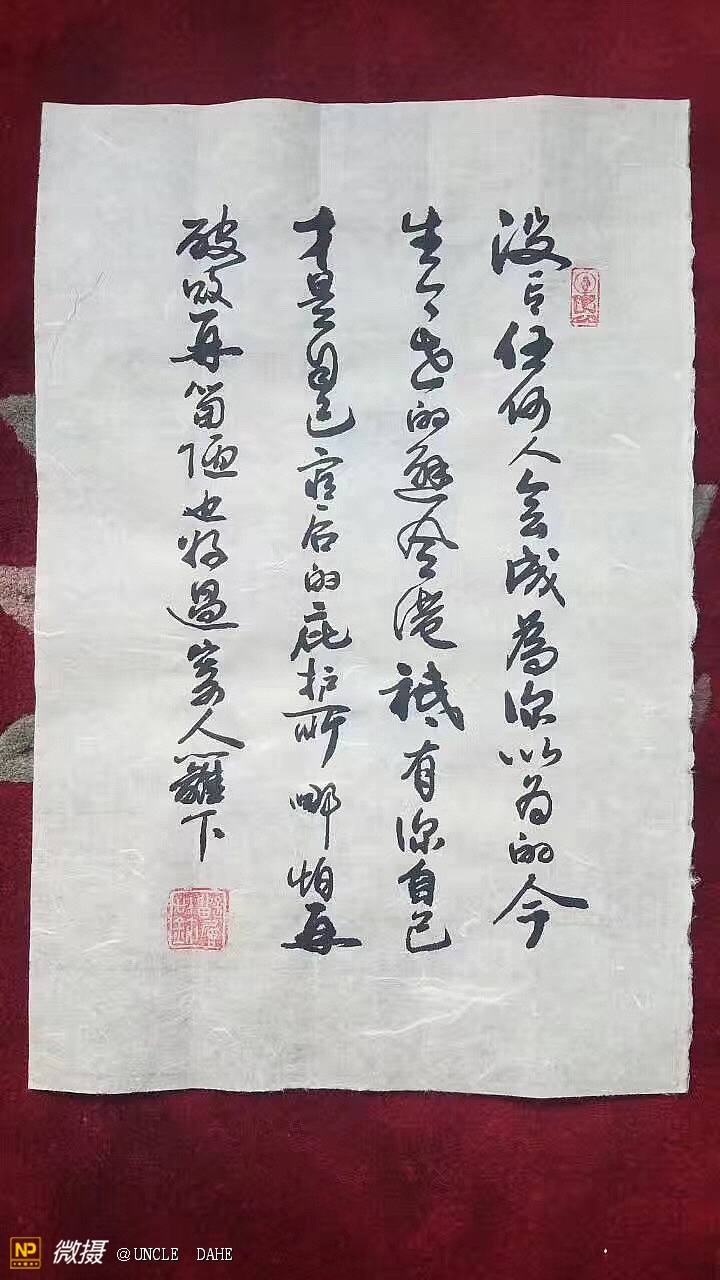 没有任何人会成為你以为的今
生今世的避風港祇有你自己
才是自己最后的庇护所哪怕再
破败再简陋也好過寄人籬下
NP 微摄 @UNCLE DAHE